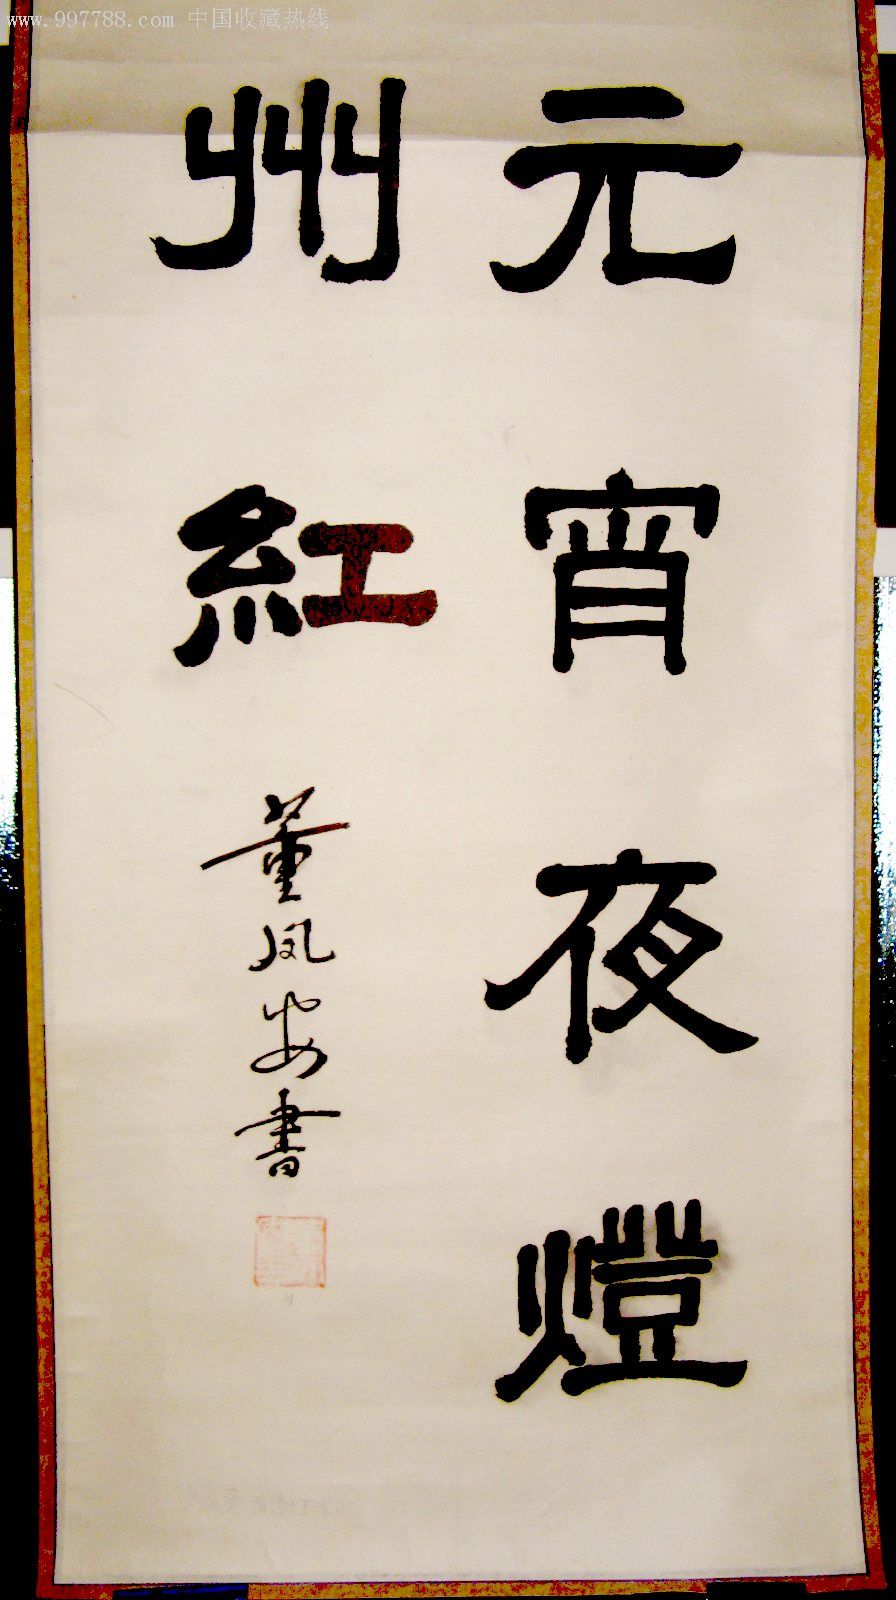 www.997788.com 中国收藏热线
元宵夜燈
州紅
董凤安書